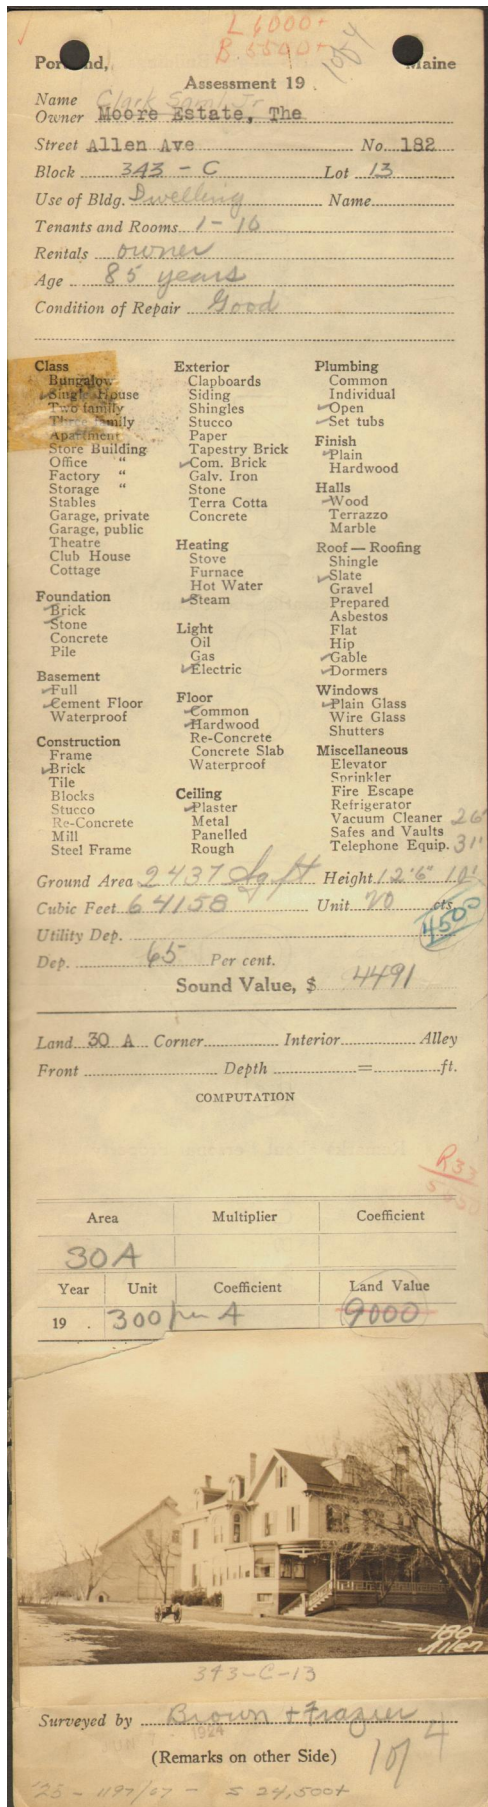 L 6000+
B. 5500+
1 of 4
Portland, Maine
Assessment 19
Name Clark Saml Jr
Owner Moore Estate, The
Street Allen Ave No. 182
Block 343 - C Lot 13
Use of Bldg. Dwelling Name
Tenants and Rooms 1 - 16
Rentals owner
Age 85 years
Condition of Repair Good
Class
Bungalow
Single House
Two family
Three family
Apartment
Store Building
Office "
Factory "
Storage "
Stables
Garage, private
Garage, public
Theatre
Club House
Cottage
Foundation
Brick
Stone
Concrete
Pile
Basement
Full
Cement Floor
Waterproof
Construction
Frame
Brick
Tile
Blocks
Stucco
Re-Concrete
Mill
Steel Frame
Exterior
Clapboards
Siding
Shingles
Stucco
Paper
Tapestry Brick
Com. Brick
Galv. Iron
Stone
Terra Cotta
Concrete
Heating
Stove
Furnace
Hot Water
Steam
Light
Oil
Gas
Electric
Floor
Common
Hardwood
Re-Concrete
Concrete Slab
Waterproof
Ceiling
Plaster
Metal
Panelled
Rough
Plumbing
Common
Individual
Open
Set tubs
Finish
Plain
Hardwood
Halls
Wood
Terrazzo
Marble
Roof — Roofing
Shingle
Slate
Gravel
Prepared
Asbestos
Flat
Hip
Gable
Dormers
Windows
Plain Glass
Wire Glass
Shutters
Miscellaneous
Elevator
Sprinkler
Fire Escape
Refrigerator
Vacuum Cleaner 26'
Safes and Vaults
Telephone Equip. 31'
Ground Area 2437 Sq ft Height 12'6" 10'
Cubic Feet 64158 Unit 20 cts.
4500
Utility Dep.
Dep. 65 Per cent.
Sound Value, $ 4491
Land 30 A Corner Interior Alley
Front Depth = ft.
COMPUTATION
R33
5050
Area Multiplier Coefficient
30 A
Year Unit Coefficient Land Value
19 . 300 per A 9000
180
Allen
343-C-13
Surveyed by Brown + Frazier
1924
(Remarks on other Side)
1 of 4
'23 - 1197/67 - S 24,500+